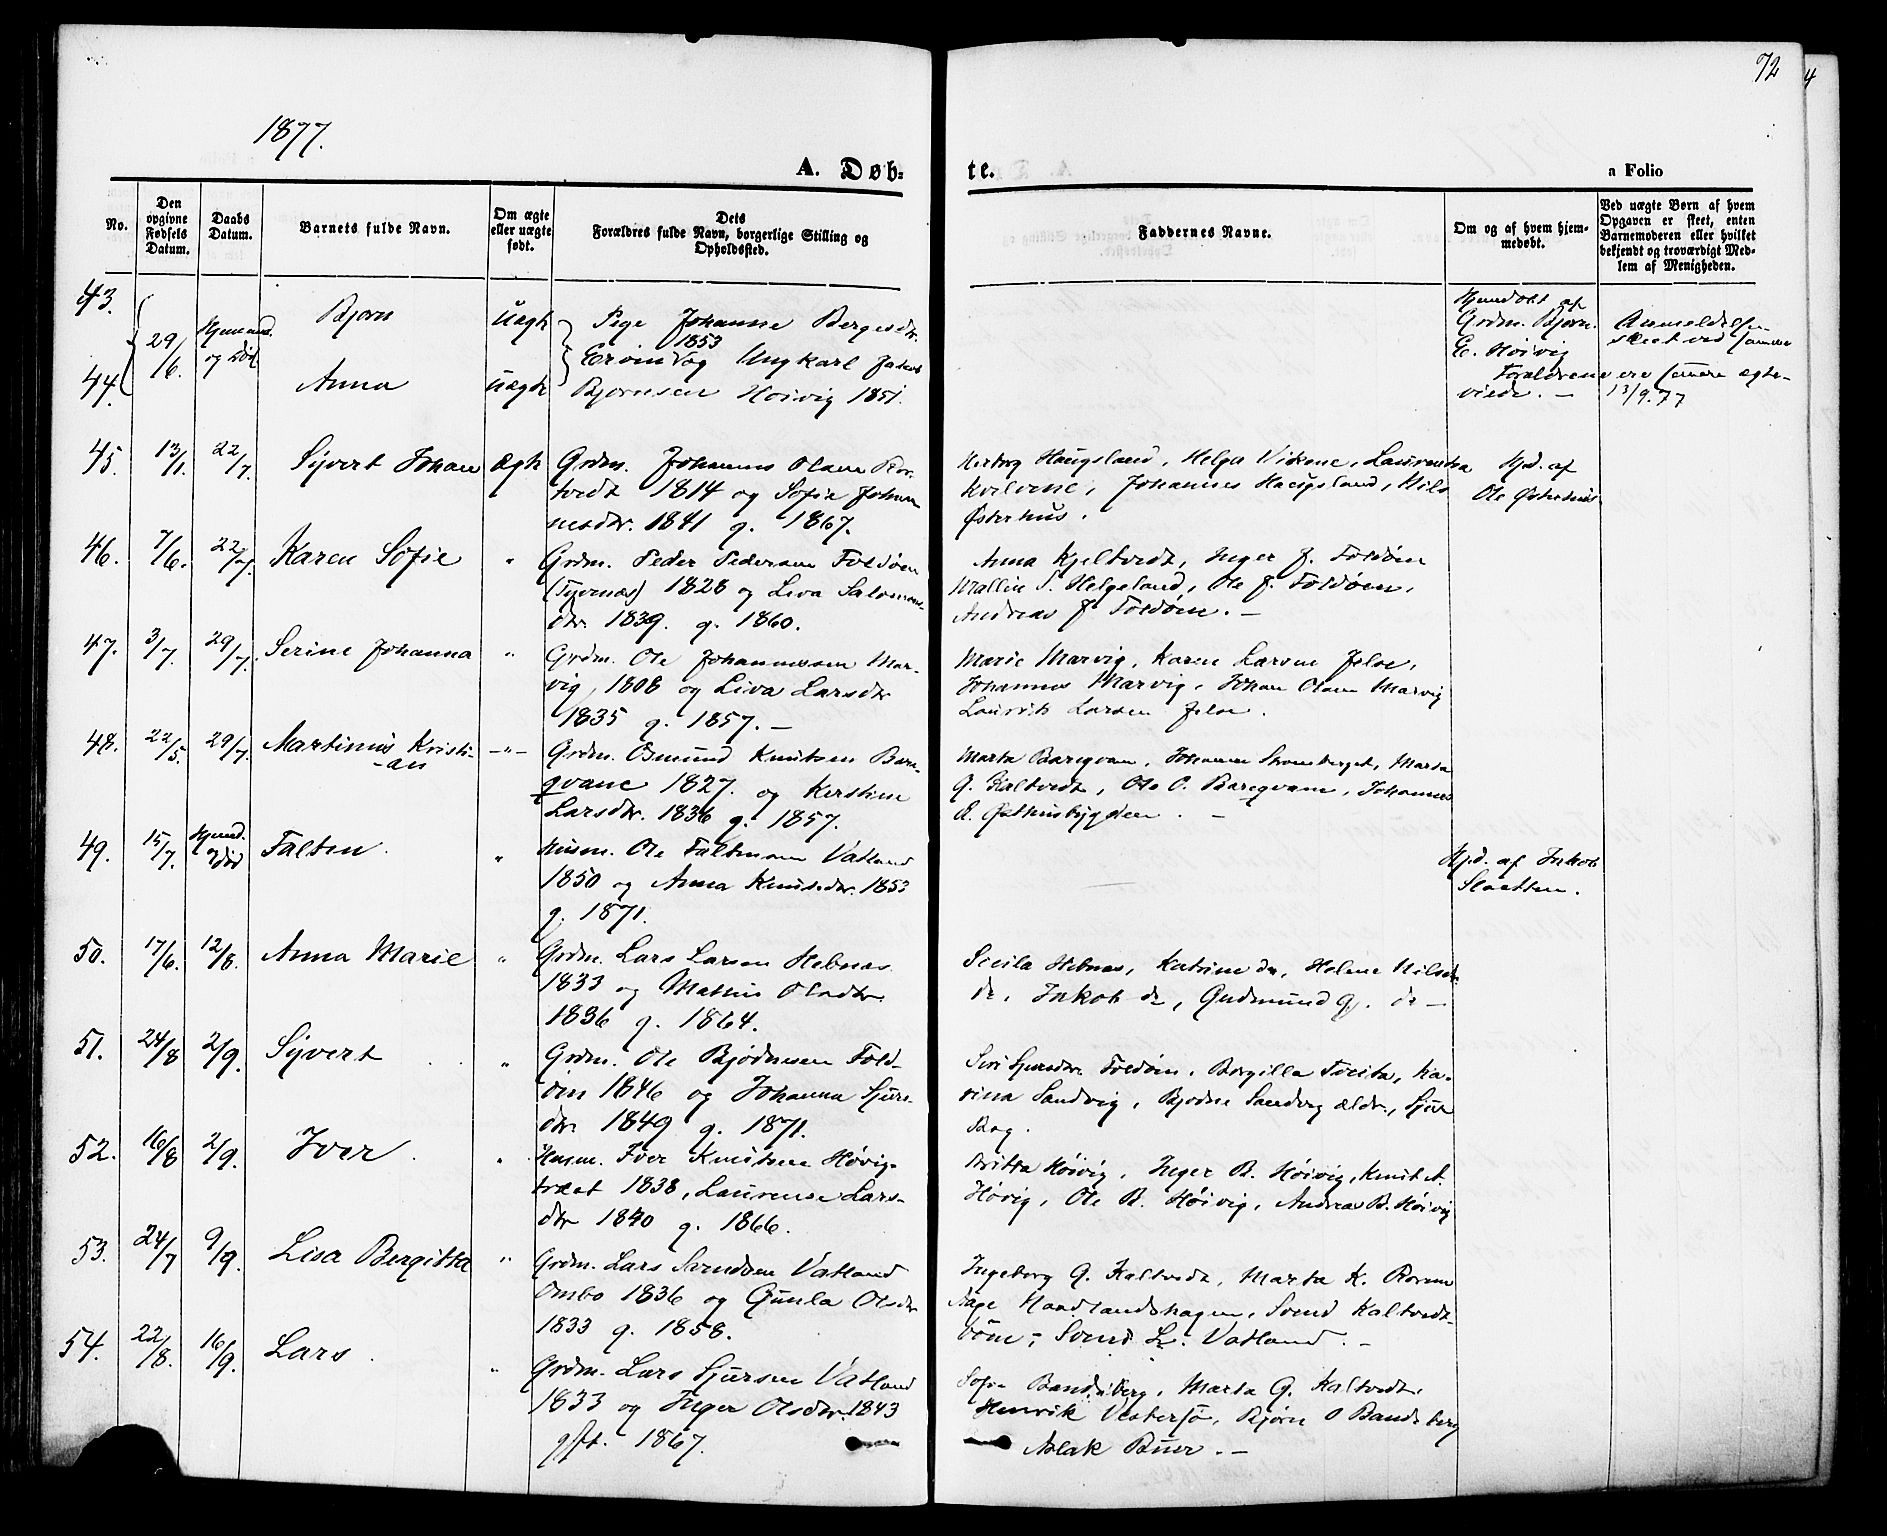 72
4
1877.
A. Døb-
te.
a Folio
No.
Den opgivne Fødsels Datum.
Daabs Datum.
Barnets fulde Navn.
Om ægte eller uægte født.
Dets Forældres fulde Navn, borgerlige Stilling og Opholdssted.
Faddernes Navne.
Om og af hvem hjemmedøbt.
Ved uægte Børn af hvem Opgaven er skeet, enten Barnemoderen eller hvilket bekjendt og troværdigt Medlem af Menigheden.
43.
29/6.
og død
Bjørn
Uægte
Pige Johanne Bergesdr.
1853
Ungkarl Jakob
Hjemdøbt af
Grdm. Bjørn
E. Høivig
Anmeldelsen
skeet ved samme
44.
Anna
uægte
Bjørnsen Høivig 1851.
Forældrene ere senere ægte-
viede. - 13/9.77
45. 13/1. 22/7. Sijvert Johan ægte
Grdm. Johannes Olsen
1814 og Sofie Johan-
nesdr. 1841 g. 1867.
Herborg Haugsland, Helga Vikene, Laurentsa
Kvilvene, Johannes Haugsland, Nils
Østerhus.
Hjd. af
Ole Østerhus
46. 7/6. 22/7. Karen Sofie "
Grdm. Peder Pedersen Foldøen
(Tyvenæs) 1828 og Liva Salomons-
dr. 1839. g. 1860.
Anna Kjeltvedt, Inger J. Foldøen
Mallin S. Helgeland, Ole J. Foldøen,
Andreas J. Foldøen. -
47. 3/7. 29/7. Serine Johanna "
Grdm. Ole Johannessen Mar-
vig, 1808 og Liva Larsdr
1835 g. 1857. -
Marie Marvig, Karen Larsen Jelse,
Johannes Marvig, Johan Olsen Marvig
Laurits Larsen Jelse.
48. 22/5. 29/7. Martinus Kristi-
-an -"-
Grdm. Osmund Knutsen Bare-
qvane 1827. og Kerstine
Larsdr. 1836 g. 1857.
Marta Bareqvam, Johanne Stromberget, Marta
G. Kaltvedt, Ole O. Bareqvam, Johannes
E. Østhusbygden. -
49. 15/7. Hjemd. Falten. "
Husm. Ole Faltinsen Vatland
1850 og Anna Knutsdr. 1853
g. 1871.
Hjd. af Jakob
Slaatten.
50. 17/6. 12/8. Anna Marie "
Grdm. Lars Larsen Hebnæs
1833 og Olsdtr.
1836 g. 1864.
Sicila Hebnæs, Katrine do, Helene Nilsdr.
do. Jakob do, Gudmund G. do -
51. 24/8 2/9. Sijvert "
Grdm. Ole Bjødnesen Fold-
øen 1846 og Johanna Sjurs-
dr. 1849 g. 1871.
Siri Sjursdr. Foldøen, Bergilla Tveita, Ka-
rina Sandvig, Bjødne Sandvig ældr., Sjur
52. 16/8 2/9. Iver. "
Husm. Iver Knutsen Høvig-
træet 1838, Laurense Lars-
dr 1840 g. 1866.
Britta Høivig, Inger B. Høivig, Knut A.
Høvig, Ole B. Høivig, Andreas B. Høivig
53. 24/7 9/9. Lisa Bergitta "
Grdm. Lars Svendsen Vatland
Ombo 1836 og Gunla Olsdr
1833 g. 1858.
Ingeborg G. Kaltvedt, Marta K.
Aage Haadlandshagen, Svend Kaltvedt-
døen, Svend L. Vatland. -
54. 22/8. 16/9. Lars. "
Grdm. Lars Sjursen Vatland
1833 og Inger Olsdr. 1843
gft. 1867.
Sofie Bandsberg, Marta G. Kaltvedt,
Henrik Vestersø, Bjørn O Bandsberg
Aslak Buer. -